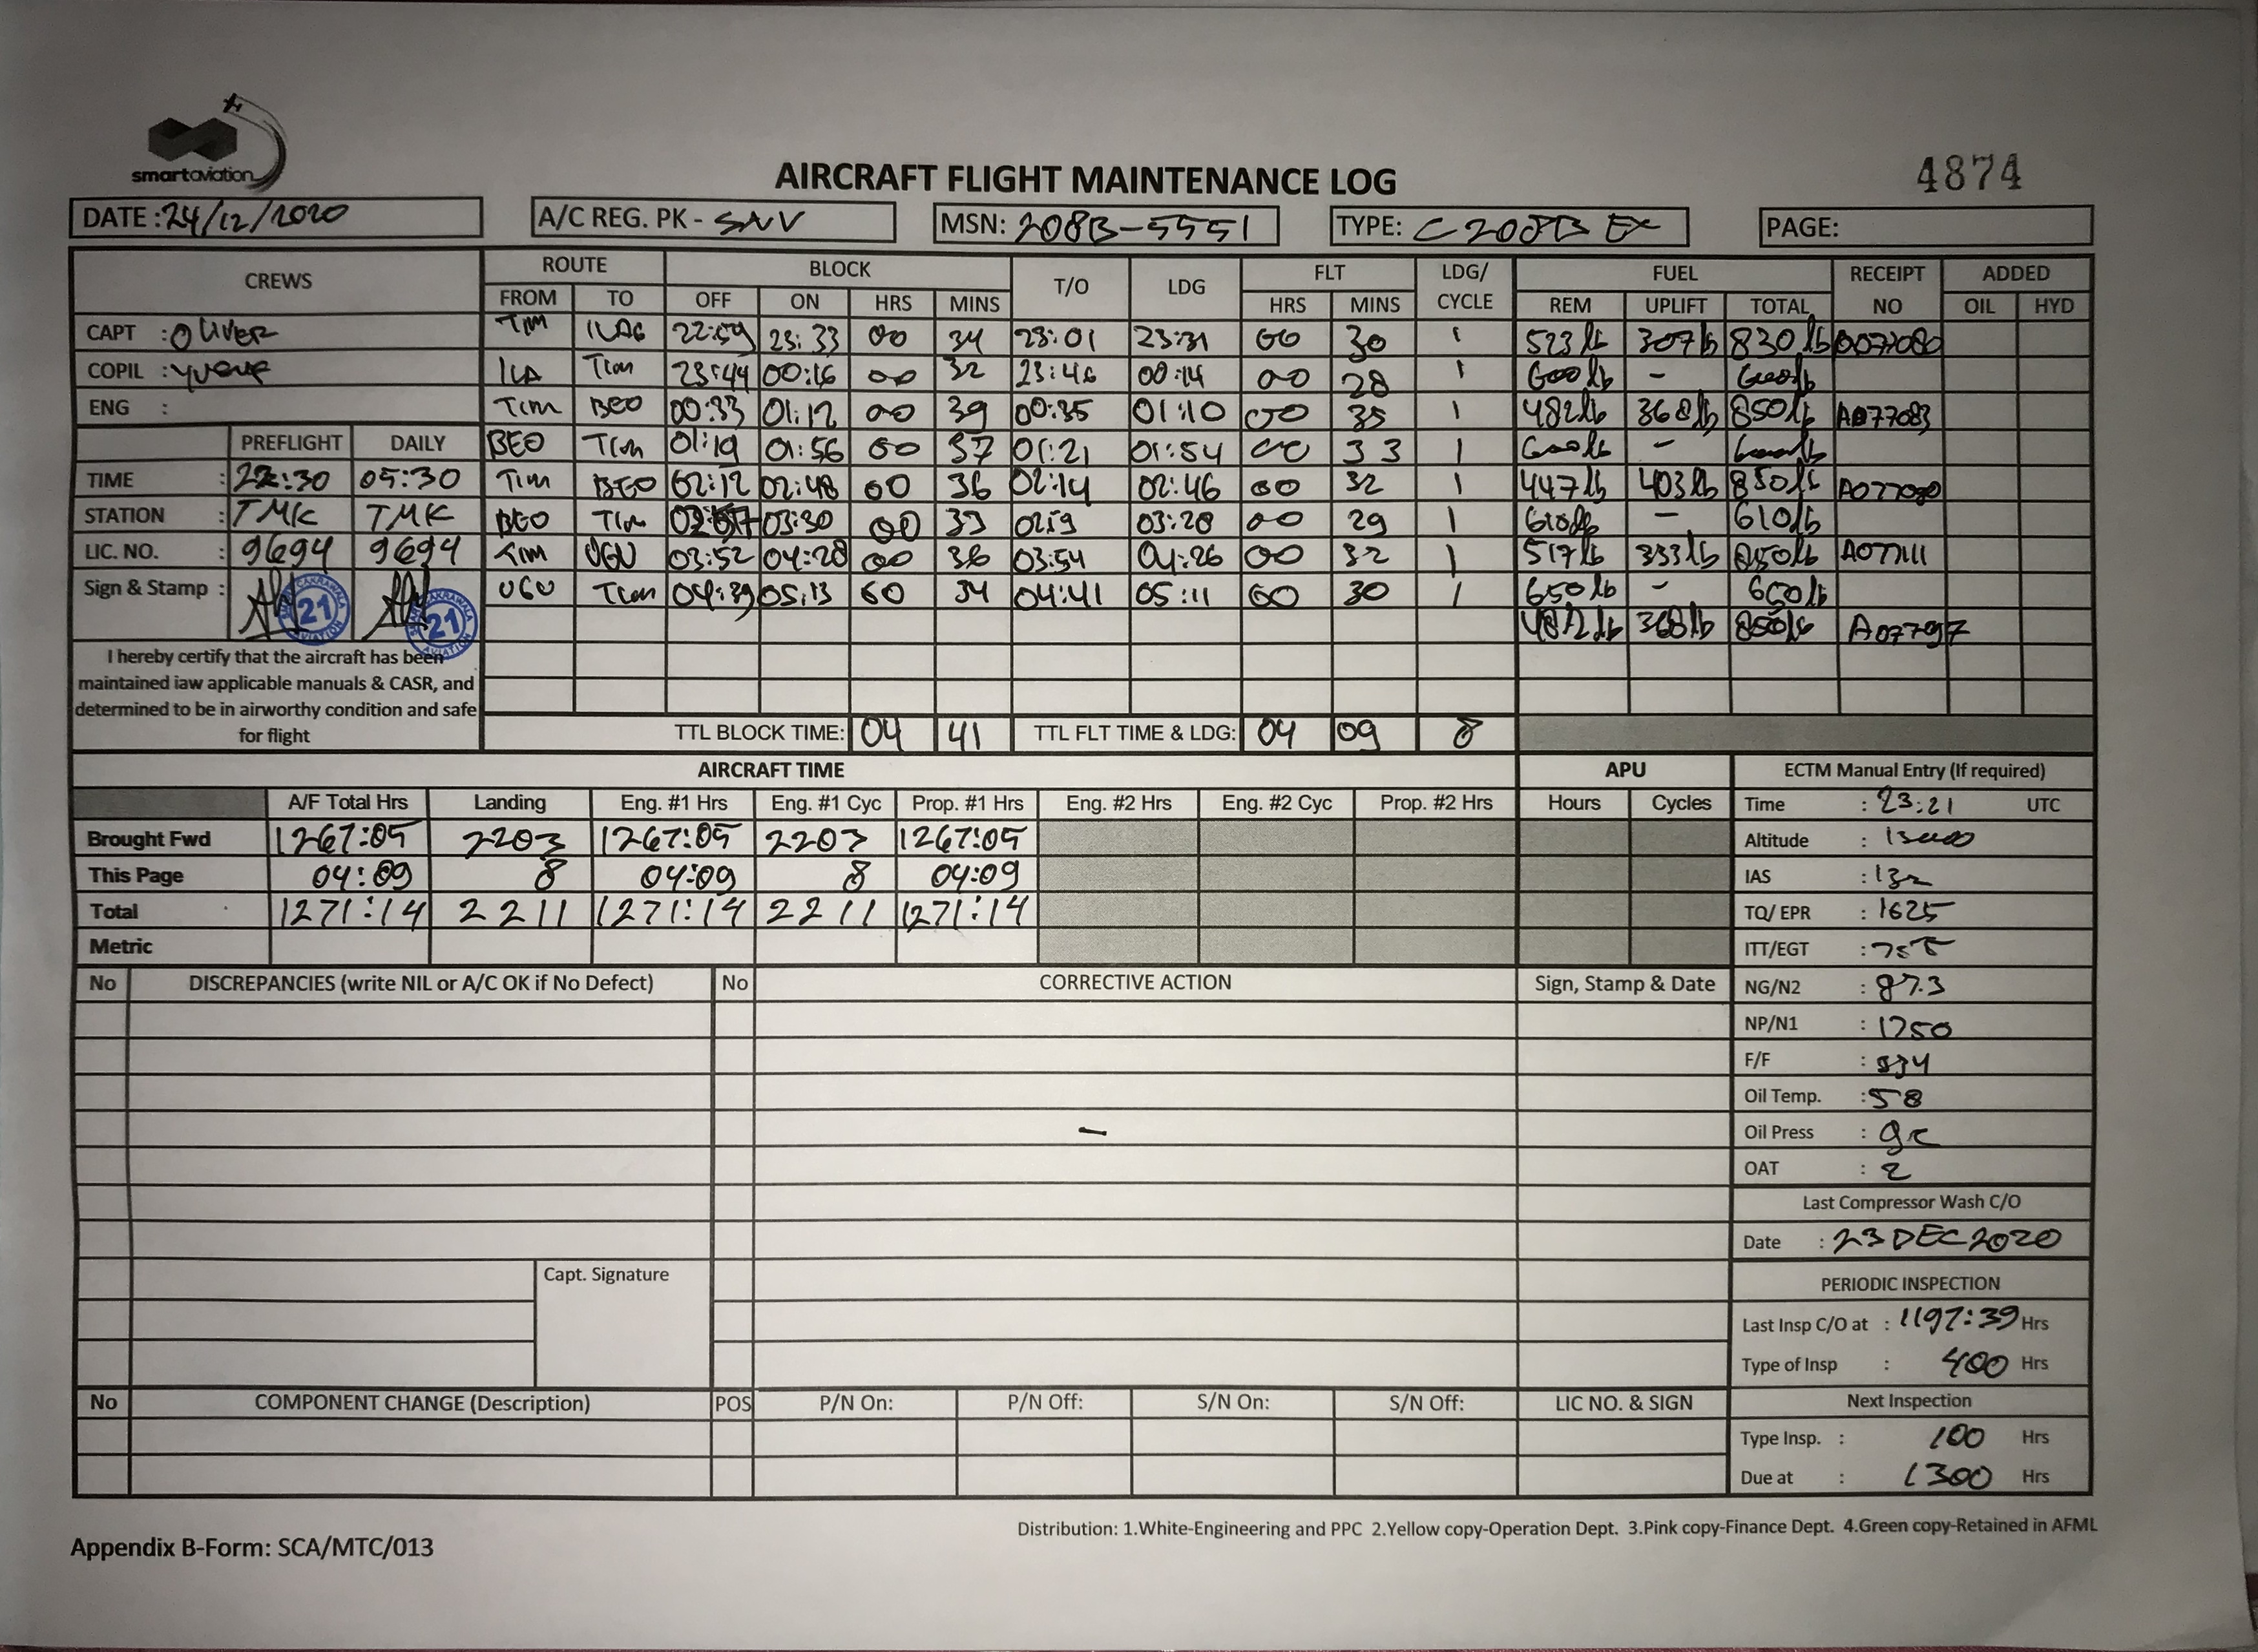 smartaviation
AIRCRAFT FLIGHT MAINTENANCE LOG
4874
DATE : 24/12/2020
A/C REG. PK - SNV
MSN: 208B-5551
TYPE: C208B EX
PAGE:
CREWS ROUTE BLOCK T/O LDG FLT LDG/ CYCLE FUEL RECEIPT NO ADDED
FROM TO OFF ON HRS MINS HRS MINS REM UPLIFT TOTAL OIL HYD
CAPT : Oliver TIM ILAG 22:59 23:33 00 34 23:01 23:31 00 30 1 523 lb 307 lb 830 lb
COPIL : ILA TIM 23:44 00:16 00 32 23:46 00:14 00 28 1 600 lb - 600 lb
ENG : TIM BEO 00:33 01:12 00 39 00:35 01:10 00 35 1 482 lb 368 lb 850 lb A077083
PREFLIGHT DAILY BEO TIM 01:19 01:56 00 37 01:21 01:54 00 33 1 600 lb - 600 lb
TIME : 22:30 05:30 TIM BEO 02:12 02:48 00 36 02:14 02:46 00 32 1 447 lb 403 lb 850 lb
STATION : TMK TMK BEO TIM 02:57 03:30 00 33 0259 03:28 00 29 1 610 lb - 610 lb
LIC. NO. : 9694 9694 TIM UGU 03:52 04:28 00 36 03:54 04:26 00 32 1 517 lb 333 lb 850 lb A077111
Sign & Stamp : 21 21 UGU TIM 04:39 05:13 00 34 04:41 05:11 00 30 1 650 lb - 650 lb
482 lb 368 lb 850 lb
I hereby certify that the aircraft has been
maintained iaw applicable manuals & CASR, and
determined to be in airworthy condition and safe
for flight
TTL BLOCK TIME: 04 41 TTL FLT TIME & LDG: 04 09 8
AIRCRAFT TIME APU ECTM Manual Entry (If required)
A/F Total Hrs Landing Eng. #1 Hrs Eng. #1 Cyc Prop. #1 Hrs Eng. #2 Hrs Eng. #2 Cyc Prop. #2 Hrs Hours Cycles Time : 23:21 UTC
Brought Fwd 1267:05 2203 1267:05 2203 1267:05 Altitude :
This Page 04:09 8 04:09 8 04:09 IAS : 132
Total 1271:14 2211 1271:14 2211 1271:14 TQ/ EPR : 1625
Metric ITT/EGT :
No DISCREPANCIES (write NIL or A/C OK if No Defect) No CORRECTIVE ACTION Sign, Stamp & Date NG/N2 : 87.3
NP/N1 : 1750
F/F :
Oil Temp. : 58
Oil Press :
OAT : 2
Last Compressor Wash C/O
Date : 23 DEC 2020
Capt. Signature
PERIODIC INSPECTION
Last Insp C/O at : 1197:39 Hrs
Type of Insp : 400 Hrs
No COMPONENT CHANGE (Description) POS P/N On: P/N Off: S/N On: S/N Off: LIC NO. & SIGN Next Inspection
Type Insp. : 100 Hrs
Due at : 1300 Hrs
Distribution: 1.White-Engineering and PPC 2.Yellow copy-Operation Dept. 3.Pink copy-Finance Dept. 4.Green copy-Retained in AFML
Appendix B-Form: SCA/MTC/013